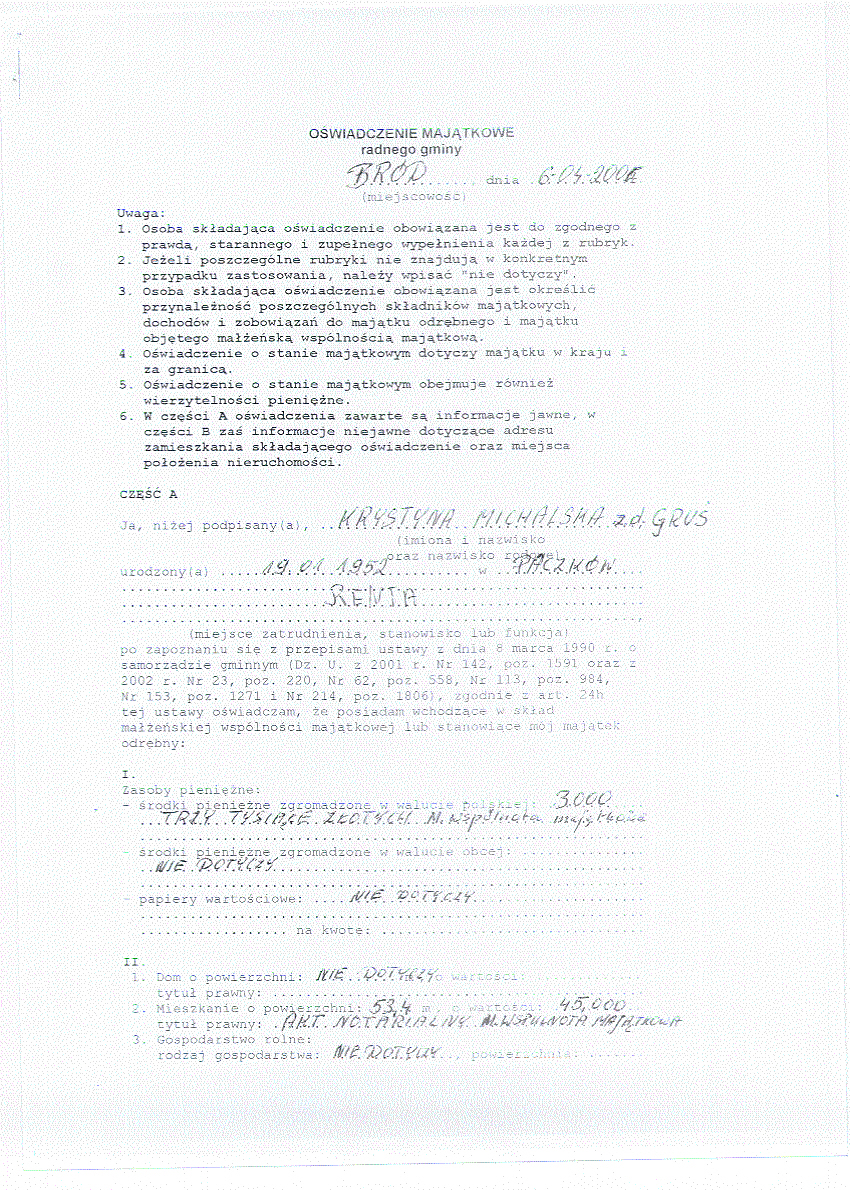 OŚWIADCZENIE MAJĄTKOWE
radnego gminy
BRÓD ......., dnia .6.04.
(miejscowość)
Uwaga:
1. Osoba składająca oświadczenie obowiązana jest do zgodnego z
prawdą, starannego i zupełnego wypełnienia każdej z rubryk.
2. Jeżeli poszczególne rubryki nie znajdują w konkretnym
przypadku zastosowania, należy wpisać "nie dotyczy".
3. Osoba składająca oświadczenie obowiązana jest określić
przynależność poszczególnych składników majątkowych,
dochodów i zobowiązań do majątku odrębnego i majątku
objętego małżeńską wspólnością majątkową.
4. Oświadczenie o stanie majątkowym dotyczy majątku w kraju i
za granicą.
5. Oświadczenie o stanie majątkowym obejmuje również
wierzytelności pieniężne.
6. W części A oświadczenia zawarte są informacje jawne, w
części B zaś informacje niejawne dotyczące adresu
zamieszkania składającego oświadczenie oraz miejsca
położenia nieruchomości.
CZĘŚĆ A
Ja, niżej podpisany(a), ..KRYSTYNA MICHALSKA z.d. GRUŚ
(imiona i nazwisko
oraz nazwisko rodowe)
urodzony(a) .....19.01.1952.......... w ..PACZKÓW....
RENTA
(miejsce zatrudnienia, stanowisko lub funkcja)
po zapoznaniu się z przepisami ustawy z dnia 8 marca 1990 r. o
samorządzie gminnym (Dz. U. z 2001 r. Nr 142, poz. 1591 oraz z
2002 r. Nr 23, poz. 220, Nr 62, poz. 558, Nr 113, poz. 984,
Nr 153, poz. 1271 i Nr 214, poz. 1806), zgodnie z art. 24h
tej ustawy oświadczam, że posiadam wchodzące w skład
małżeńskiej wspólności majątkowej lub stanowiące mój majątek
odrębny:
I.
Zasoby pieniężne:
- środki pieniężne zgromadzone w walucie polskiej: .3.000....
...TRZY TYSIĄCE ZŁOTYCH M.wspólnota majątkowa
- środki pieniężne zgromadzone w walucie obcej: .............
..NIE DOTYCZY..............
- papiery wartościowe: ....NIE DOTYCZY..............
................. na kwotę: ...........................
II.
1. Dom o powierzchni: NIE DOTYCZY o wartości: ............
tytuł prawny: .....................................
2. Mieszkanie o powierzchni: 53,4 m², o wartości: .45.000..
tytuł prawny: .AKT NOTARIALNY M.WSPULNOTA MAJĄTKOWA
3. Gospodarstwo rolne:
rodzaj gospodarstwa: NIE DOTYCZY.., powierzchnia: .......